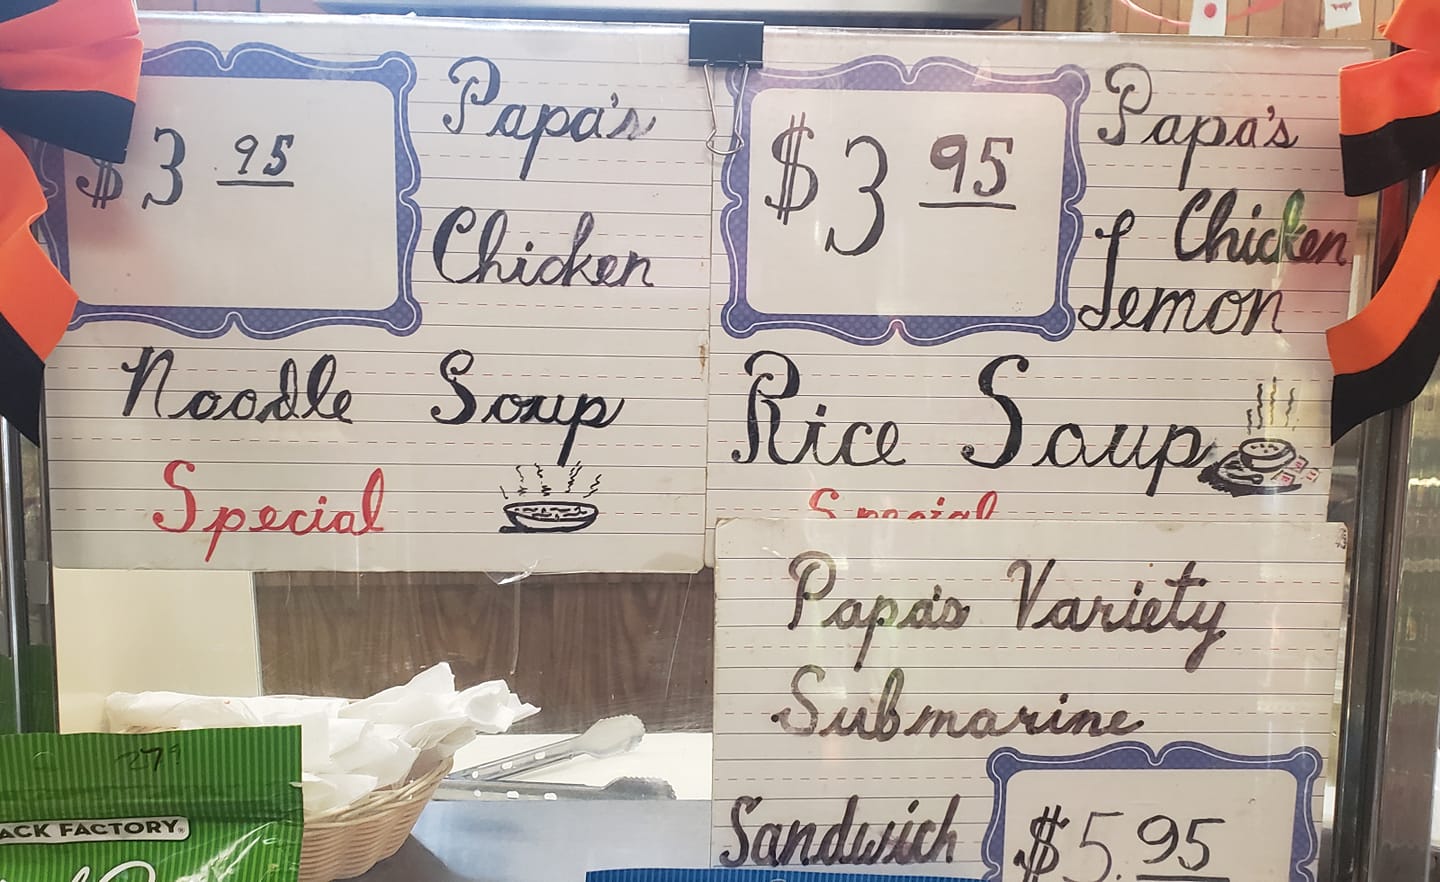 $3 95
Papa's
Chicken
Noodle Soup
Special
$3 95
Papa's
Chicken
Lemon
Rice Soup
Special
Papa's Variety
Submarine
Sandwich
$5.95
279
ACK FACTORY